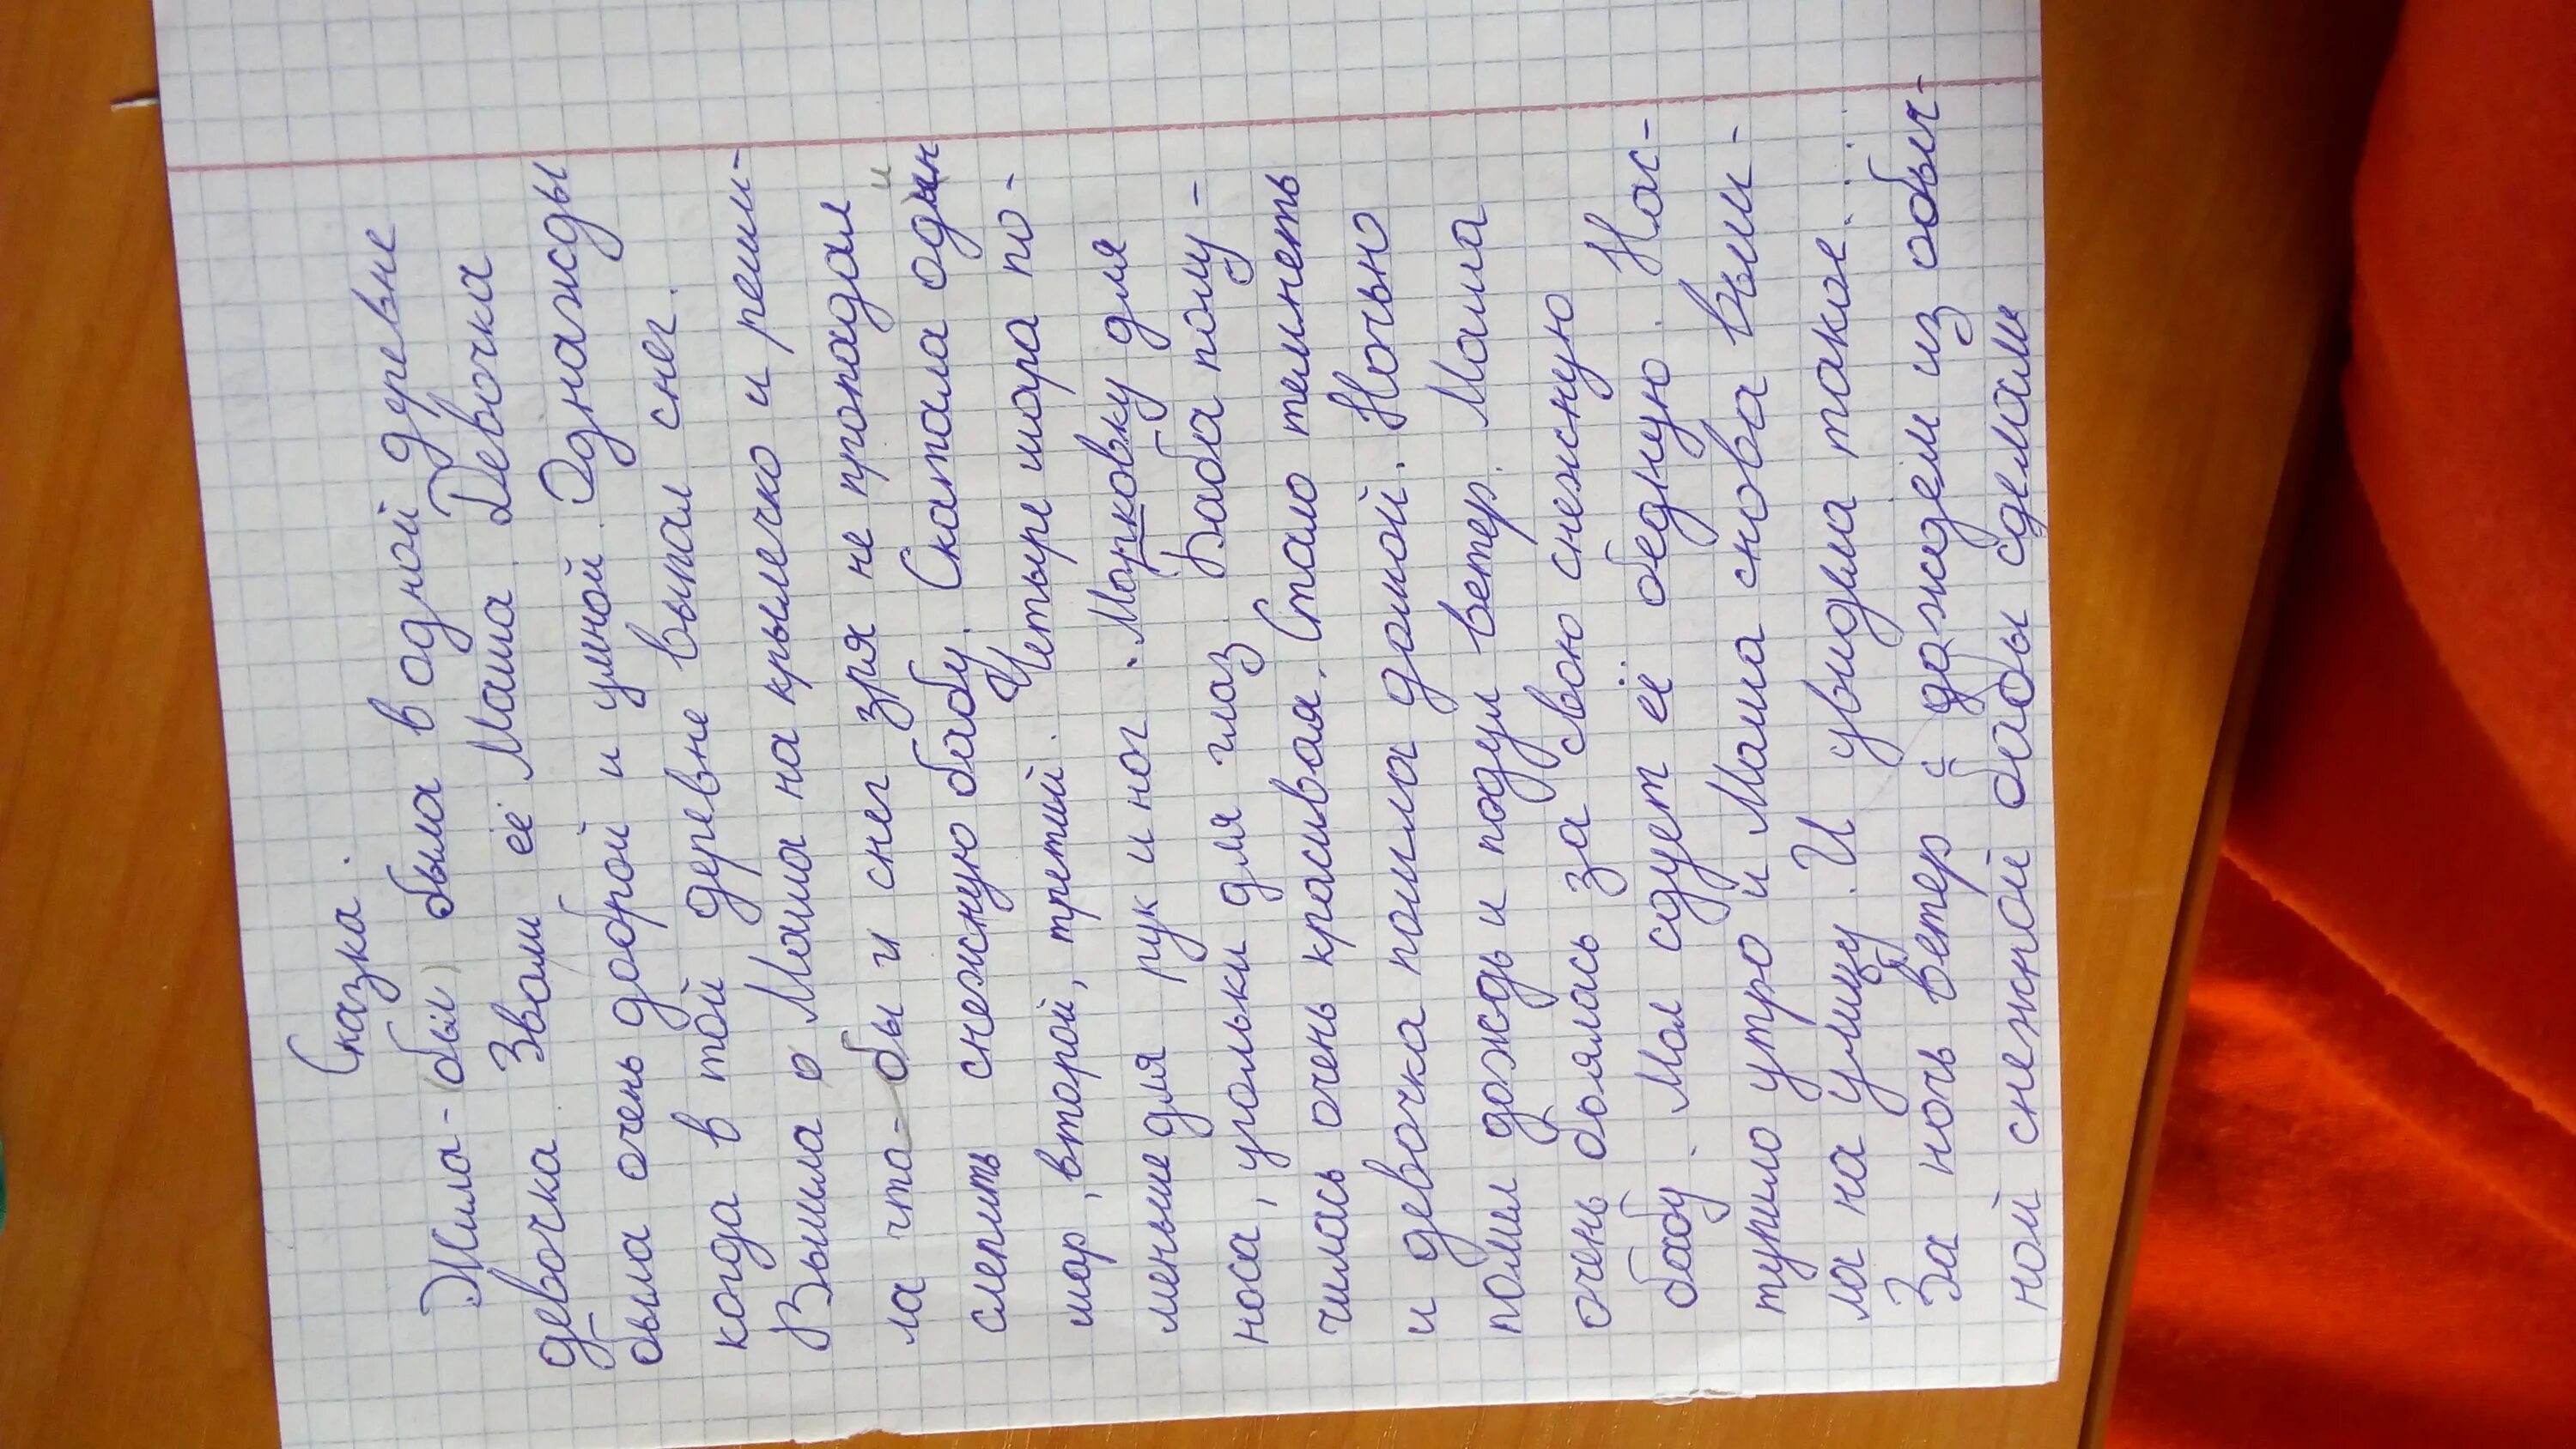 Сказка.
Жила-(был) была в одной древне
девочка. Звали её Маша. Девочка
была очень доброй и умной. Однажды
когда в той деревне выпал снег.
Вышла о Маша на крылечко и реши-
ла что-бы и снег зря не пропадал и
слепить снежную бабу. Скатала один
шар, второй, третий. Четыре шара по-
меньше для рук и ног. Морковку для
носа, угольки для глаз. Баба полу-
чилась очень красивая. Стало темнеть
и девочка пошла домой. Ночью
пошёл дождь и подул ветер. Маша
очень боялась за свою снежную
бабу. Мол сдует её бедную. Нас-
тупило утро и Маша снова выш-
ла на улицу. И увидела такое...
За ночь ветер с дождём из обыч-
ной снежной бабы сделали